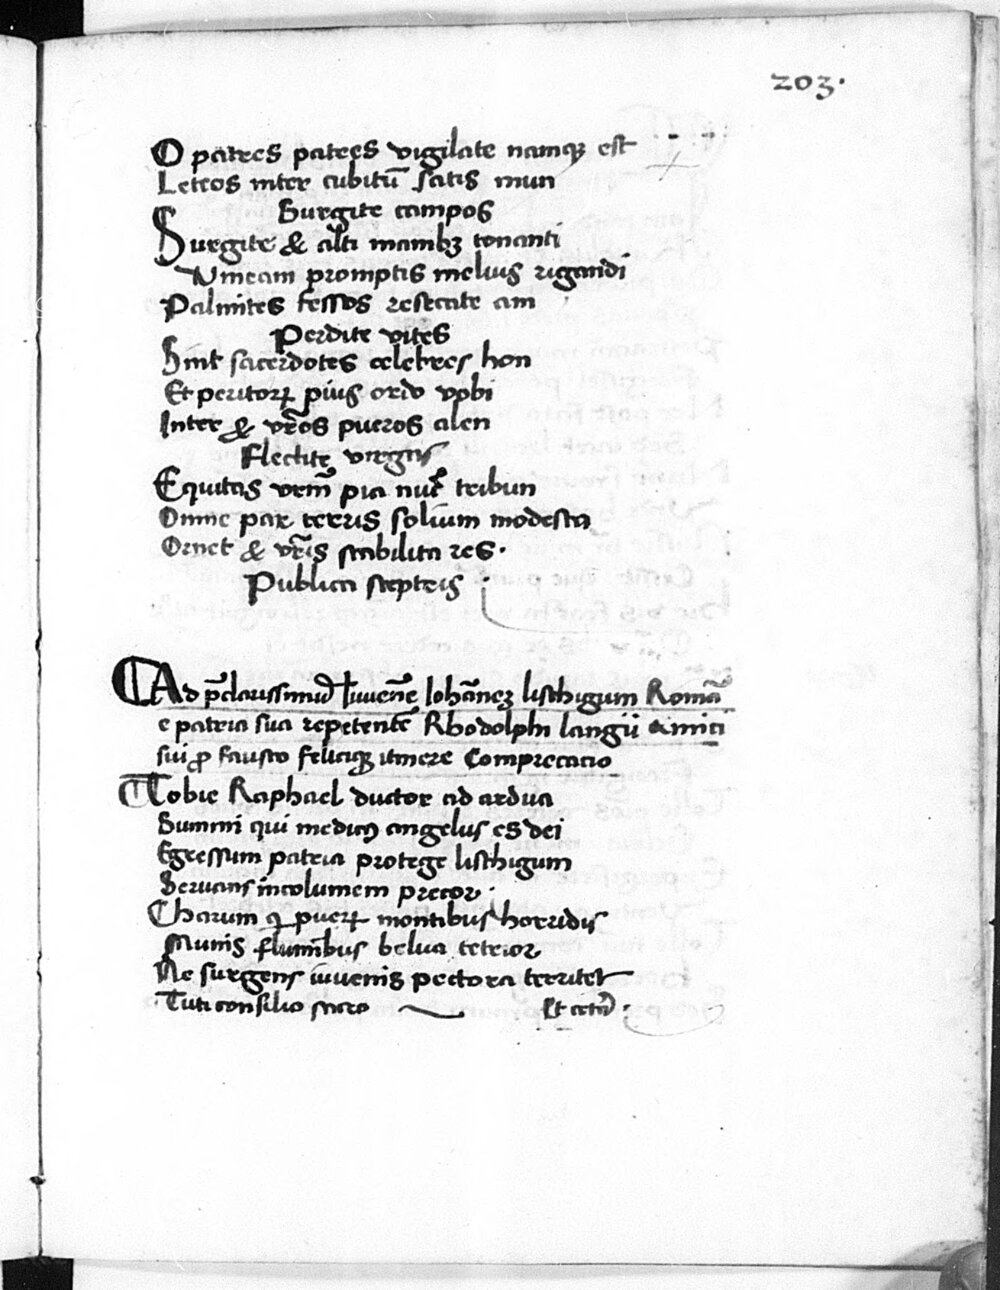 203.
O patres patres vigilate namqꝫ est
Lectos inter cubitū satis mun
Surgite campos
Surgite & alti manibꝫ tonanti
Vineam promptis melius rigandi
Palmites fessos resecate am
Perdite vites
Sint sacerdotes celebres hon
Et peritoꝝ pius ordo vobi
Inter & vr̄os pueros alen
Flectite virgis
Equitas vrm̄ pia nut tribun
Omne par terris solium modesta
Ornet & vr̄is stabilita res.
Publica sceptris
Ad p̄clarissimū Iuvenē Iohāneꝫ lischigum Romā
e patria sua repetentē Rhodolphi langii Amici
sui ꝓ fausto felicıqꝫ itinere Comprecatio
Tobie Raphael ductor ad ardua
Summi qui medicꝰ angelus es dei
Egressum patria protege listhigum
Servans incolumem precor.
Charum q̄ pueꝝ montibus horridis
Munis fluminibus belua tetrior
Ne surgens iuvenis pectora territet
Tuti consilio sacro Et cetā.